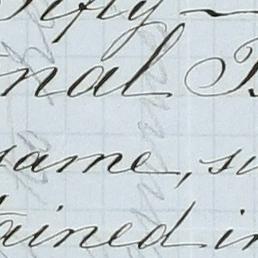 Fifty
nal B
same, su
tained in